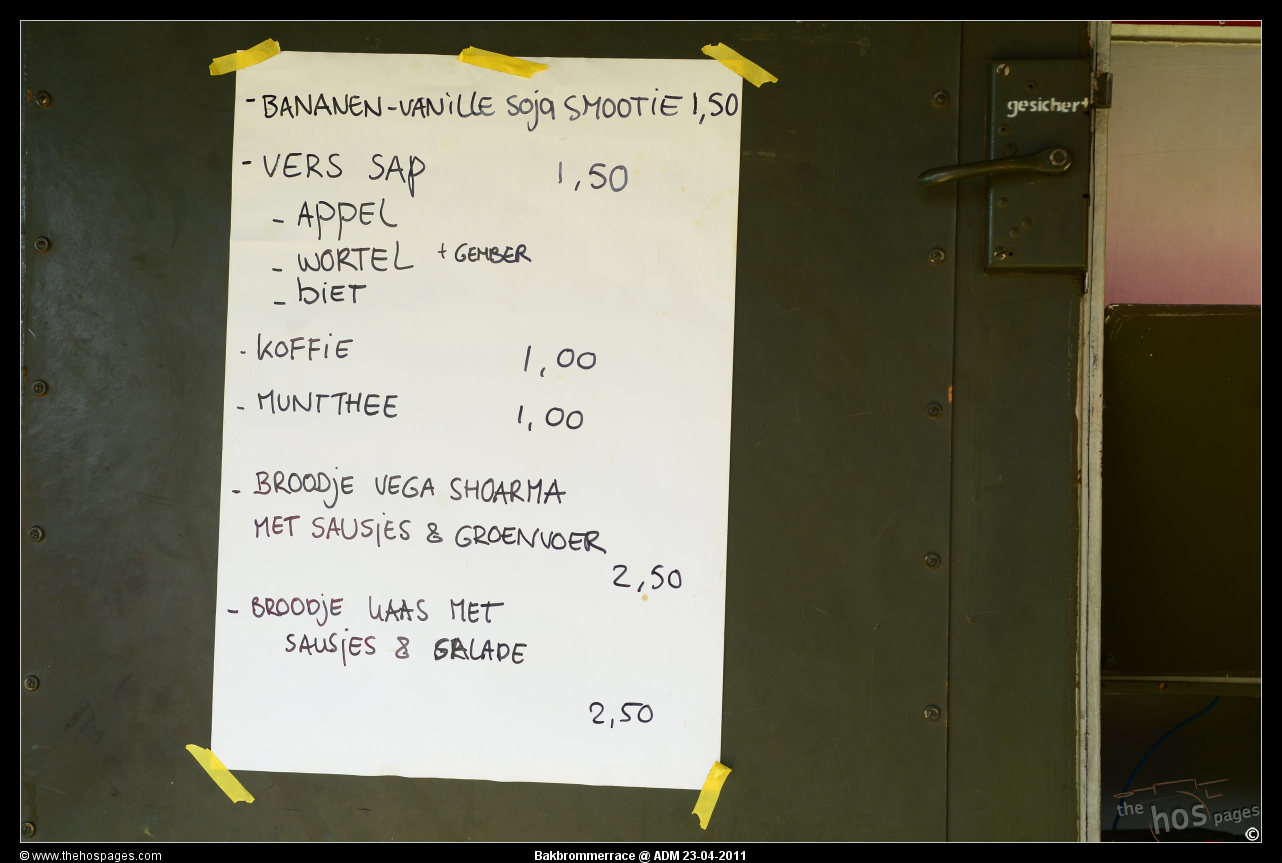 - BANANEN-VANILLE Soja SMOOTIE 1,50
- VERS SAP 1,50
- APPEL
- WORTEL + GEMBER
- biET
- KOFFiE 1,00
- MUNTTHEE 1,00
- BROODjE VEGA SHOARMA
MET SAUSjES & GROENVOER
2,50
- BROODjE KAAS MET
SAUSjES & SALADE
2,50
gesichert
the hos pages
©
© www.thehospages.com
Bakbrommerrace @ ADM 23-04-2011